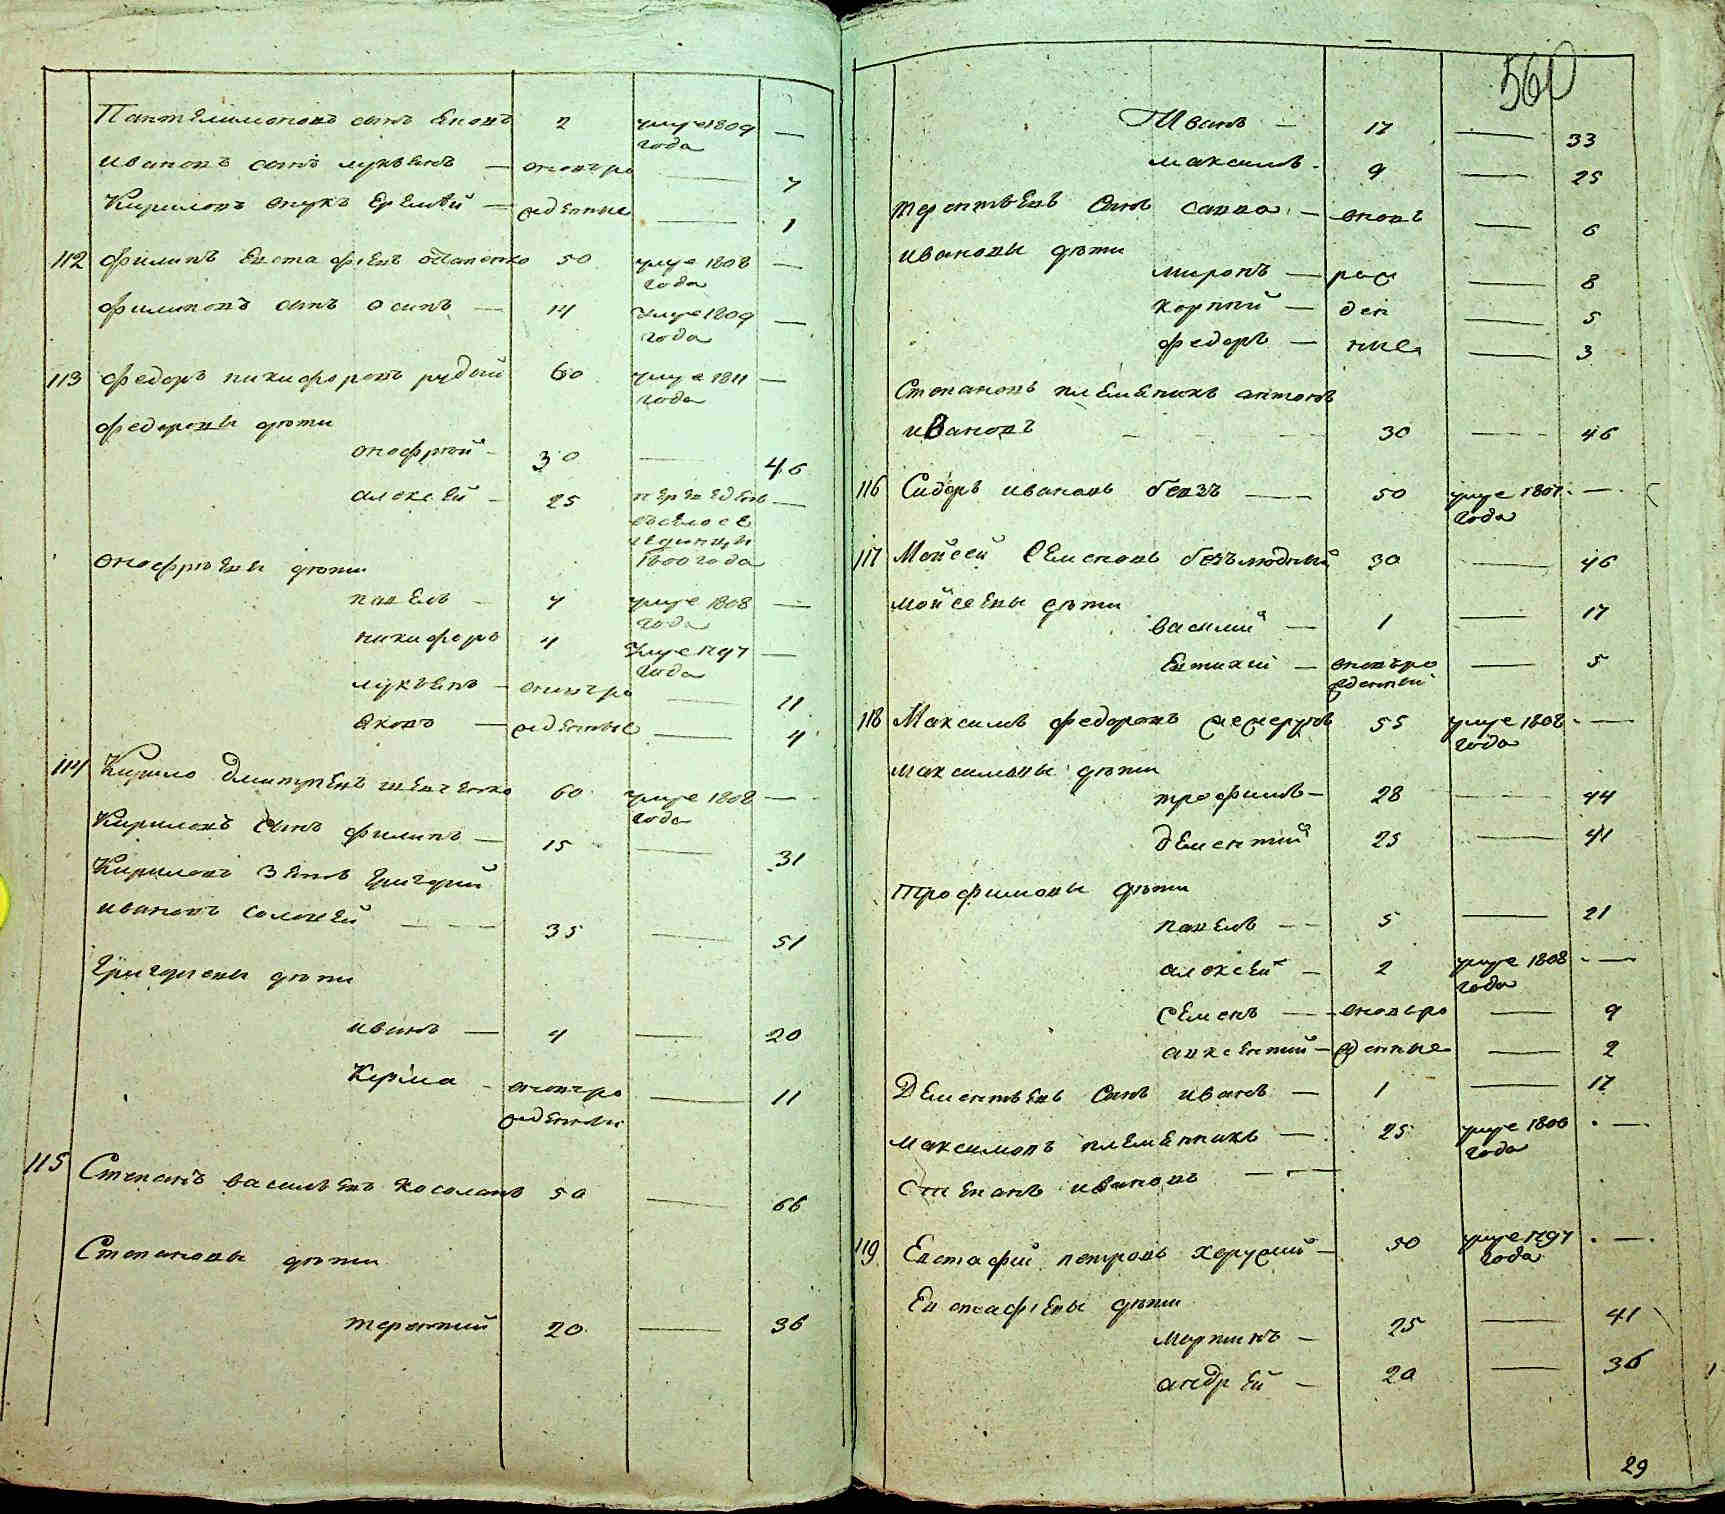 Пантелимоновъ сынъ Яковъ 2 умре 1809 года —
Ивановъ сынъ лукъянъ — вновъро — 7
Кириловъ внукъ Еремѣй — жденные — 1
112 Филипъ Евстафіевъ 50 умре 1808 года —
Филиповъ сынъ осипъ — 14 умре 1809 года —
113 Федоръ никифоровъ рудый 60 умре 1811 года —
Федоровы дѣти
онофрей — 30 — 46
алексей — 25 переведенъ —
въ село
1800 года
онофрѣевы дѣти
павелъ — 7 умре 1808 года —
никифоръ 4 умре 1797 года —
лукъянъ — вновъро — 11
Яковъ — жденные — 4
114 Кирило Дмитрѣевъ шевченко 60 умре 1808 года —
Кириловъ сынъ филипъ — 15 — 31
Кириловъ зять Григорий
ивановъ соловей — 35 — 51
Григорьевы дѣти
иванъ — 4 — 20
Козма — вновъро — 11
жденный
115 Степанъ васильевъ косолапъ 50 — 66
Степановы дѣти
терентий 20 — 36
560
Иванъ — 17 — 33
максимъ — 9 — 25
терентьевъ сынъ савва — вновъ — 6
ивановы дѣти
миронъ — рож — 8
корний — ден — 5
федоръ — ные — 3
Степановъ племеникъ антонъ
Ивановъ — 30 — 46
116 Сидоръ ивановъ бевзъ — 50 умре 1807 года —
117 Мойсей Семеновъ безълюдный 30 — 46
мойсеевы дѣти
василий — 1 — 17
Евтихий — вновъро — 5
жденный
118 Максимъ федоровъ 55 умре 1808 года —
максимовы дѣти
трофимъ — 28 — 44
дементий 25 — 41
Трофимовы дѣти
павелъ — 5 — 21
алексей — 2 умре 1808 года —
семенъ — вновьро — 9
авксентий — жденные — 2
Дементьевъ сынъ иванъ — 1 — 17
максимовъ племенникъ — 25 умре 1806 года —
Степанъ ивановъ —
119 Евстафий петровъ 50 умре 1797 года —
Евстафіевы дѣти
мартинъ — 25 — 41
андрей — 20 — 36
29